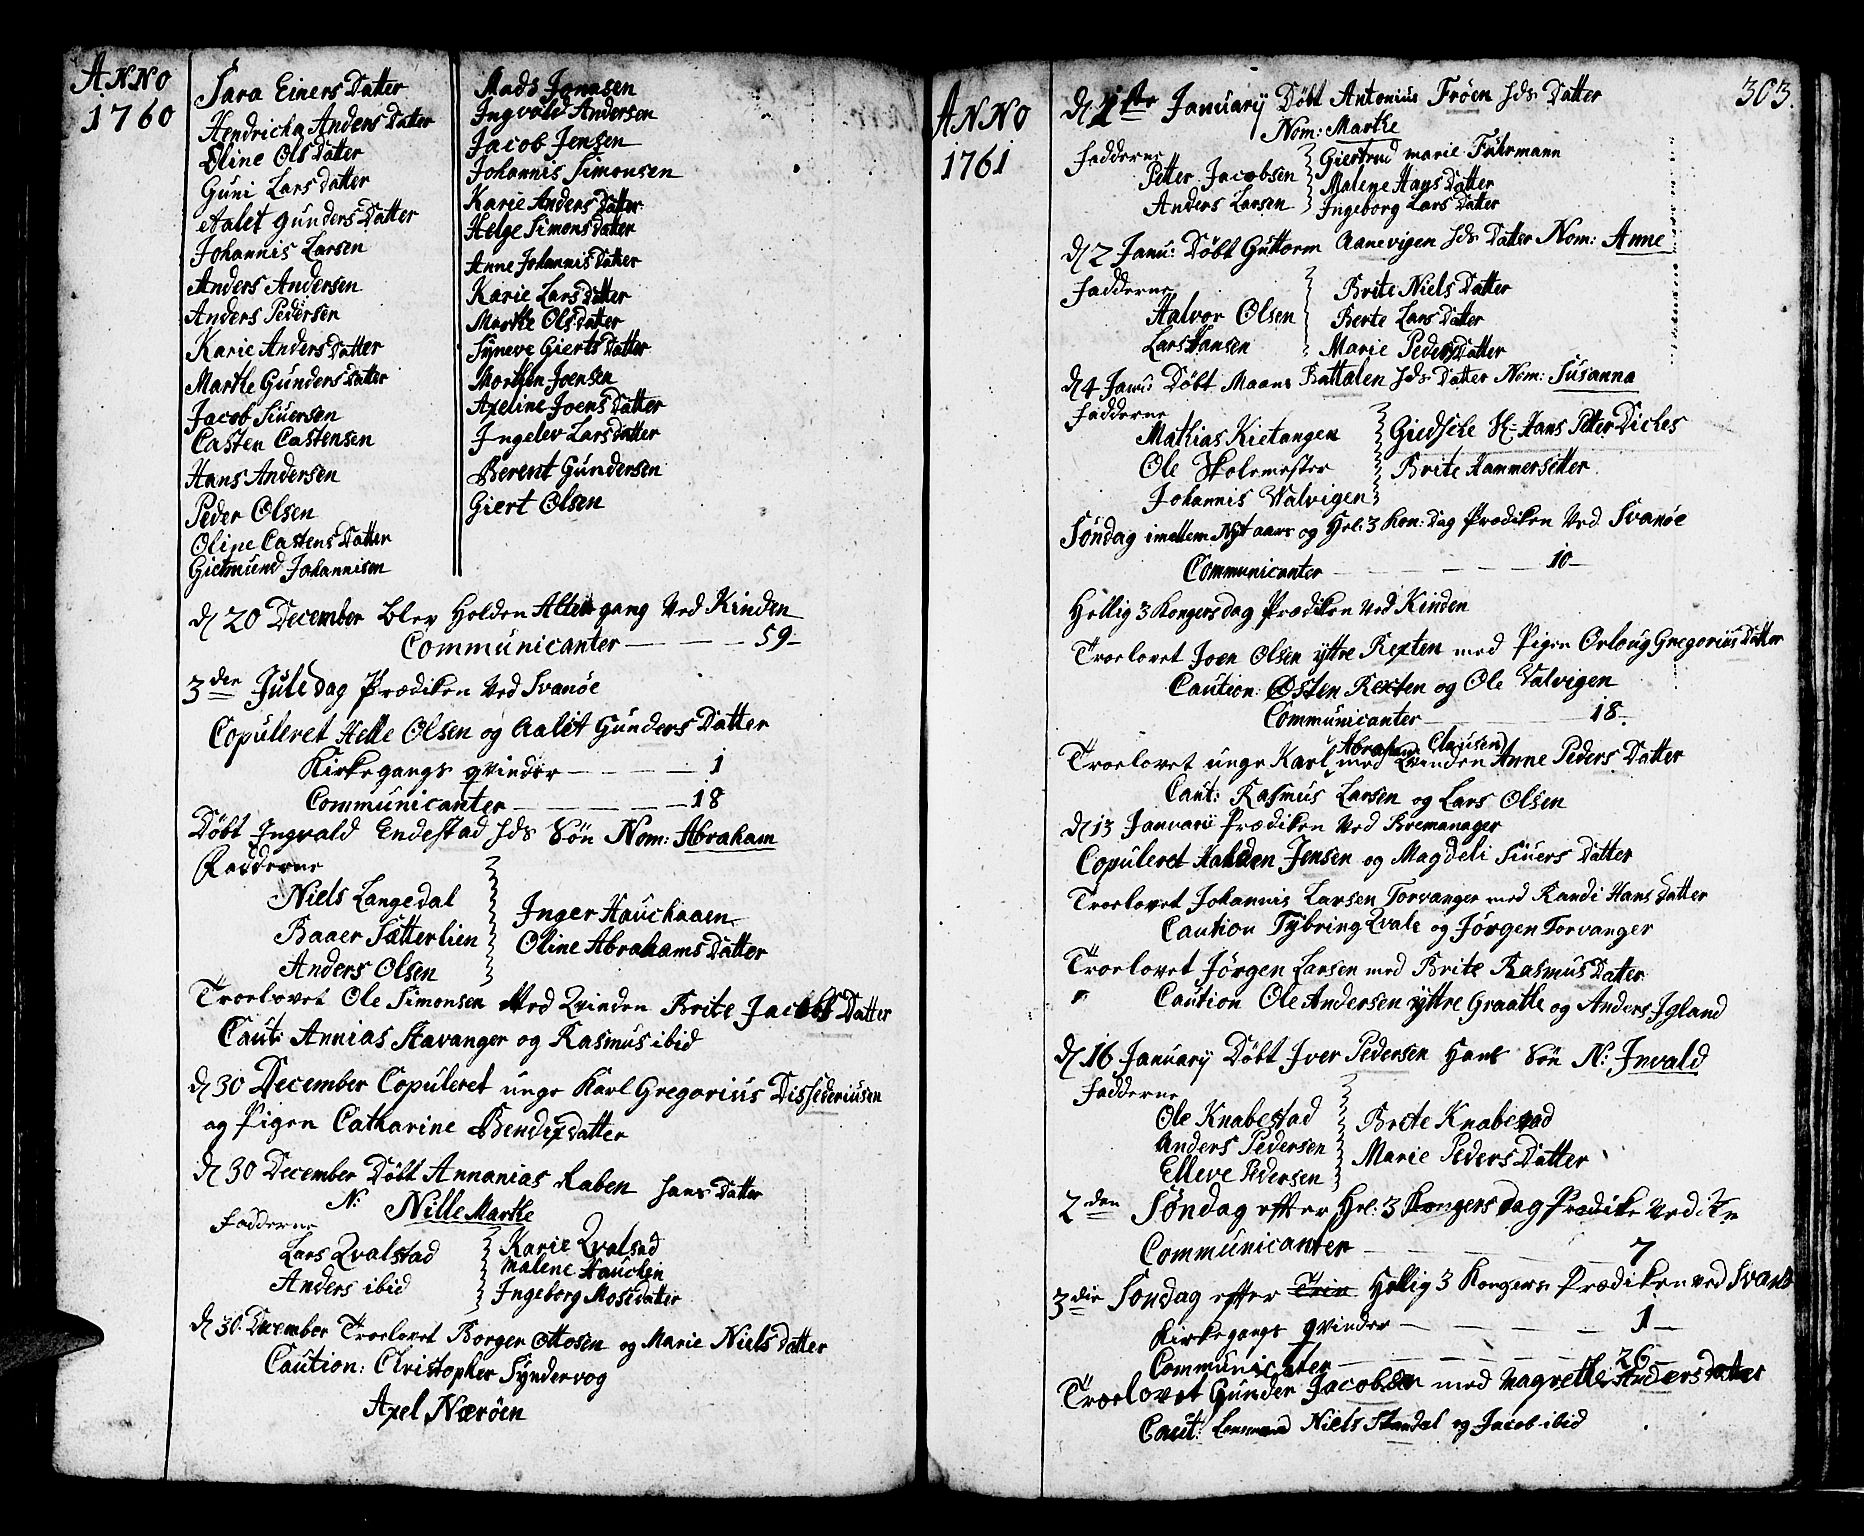 ANNO
1760
Sara Einers Datter
Hendricha Anders Datter
Eline Ols Datter
Guni Lars Datter
Aalet Gunders Datter
Johannis Larsen
Anders Andersen
Anders Pedersen
Karie Anders Datter
Marthe Gunders Datter
Jacob Siuersen
Casten Castensen
Hans Andersen
Peder Olsen
Oline Castens Datter
Giermund Johannisen
Mads Jonasen
Ingvald Andersen
Jacob Jensen
Johannis Simonsen
Karie Anders Datter
Helge Simons Datter
Anne Johannis Datter
Karie Lars Datter
Marthe Ols Datter
Syneve Gierts Datter
Morthen Joensen
Axeline Joens Datter
Ingelev Lars Datter
Berent Gundersen
Giert Olsen
d 20 December blev holden Alter gang Ved Kinden
Communicanter 59
3den Jule dag Prædiken Ved Svanøe
Copuleret Helle Olsen og Aalit Gunders Datter
Kirkegangs qvinder 1
Communicanter 18
Döbt Ingvald Endestad hds Sön Nom: Abraham
Fadderne
Niels Langedal
Baaer Sætterlien
Anders Olsen
Inger Hauchaaen
Oline Abrahams Datter
Troelovet Ole Simonsen Med Qvinden Brite Jacobs Datter
Caut: Annias Stavanger og Rasmus ibid
d 30 December Copuleret unge Karl Gregorius Dissideriusen
og Pigen Catharine Bendixdatter
d 30 December Döbt Annanias Raben hans Datter
N. Nille Marthe
Fadderne
Lars Qvalstad
Anders ibid
Karie Qvalstad
Malene Hauchen
Ingeborg Mosedatter
d 30. December Troelovet Borger Ottosen og Marie Niels Datter
Caution: Christopher Syndervog
Axel Næröen
ANNO
1761
303.
d 1ste January Döbt Antonius Fröen hds Datter
Nom: Marthe
Fadderne
Petter Jacobsen
Anders Larsen
Giertrud marie Fuhrmann
Malene Hans Datter
Ingeborg Lars Datter
d 2 Janu: Döbt Guttorm Aanevigen hds Datter Nom: Anne
Fadderne
Halvor Olsen
Lars Hansen
Brite Niels Datter
Berte Lars Datter
Marie Peders Datter
d 4 Janu: Döbt Maans Battalen hds Datter Nom: Susanna
Fadderne
Mathias Kietangen
Ole Skolemester
Johannis Valvigen
Giedsche Sl: Hans Petter Diches
Brite Hammersetter
Søndag imellem Nyt aars og Hel: 3 Kon: dag Prædiken Ved Svanøe
Communicanter 10
Hellig 3 Kongers dag Prædiken Ved Kinden
Troelovet Joen Olsen yttre Rexten med Pigen Orloug Gregorius Datter
Caution: Østen Rexten og Ole Valvigen
Communicanter 18.
Abraham Clausen
Troelovet unge Karl med Qvinden Anne Peders Datter
Caut: Rasmus Larsen og Lars Olsen
d 13 Januarii Prædiken Ved Bremanager
Copuleret Halden Jensen og Magdeli Siuers Datter
Troelovet Johannis Larsen Torvanger med Randi Hans Datter
Caution Tybring Qvale og Jörgen Torvanger
Troelovet Jörgen Larsen med Brite Rasmus Datter
Caution Ole Andersen yttre Graatle og Anders Igland
d 16 January Döbt Iver Pedersen Hans Sön N: Invald
Fadderne
Ole Knabestad
Anders Pedersen
Elleve Pedersen
Brite Knabestad
Marie Peders Datter
2den Søndag efter Hel: 3 Kongers dag Prædike Ved
Communicanter 7
3die Søndag efter Trin Hellig 3 Kongers Prædiken ved Svanö
Kirkegangs qvinder 1
Communicanter 26
Troelovet Gunder Jacobsen med Magrethe Anders datter
Caut: Niels Standal og Jacob ibid